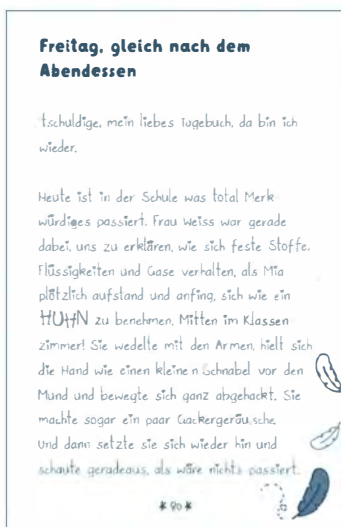 Freitag, gleich nach dem
Abendessen
tschuldige, mein liebes Tagebuch, da bin ich
wieder.
Heute ist in der Schule was total Merk
würdiges passiert. Frau Weiss war gerade
dabei, uns zu erklären, wie sich feste Stoffe,
Flüssigkeiten und Gase verhalten, als Mia
plötzlich aufstand und anfing, sich wie ein
HUHN zu benehmen. Mitten im Klassen
zimmer! Sie wedelte mit den Armen, hielt sich
die Hand wie einen kleinen Schnabel vor den
Mund und bewegte sich ganz abgehackt. Sie
machte sogar ein paar Gackergeräusche.
Und dann setzte sie sich wieder hin und
schaute geradeaus, als wäre nichts passiert.
* 90 *